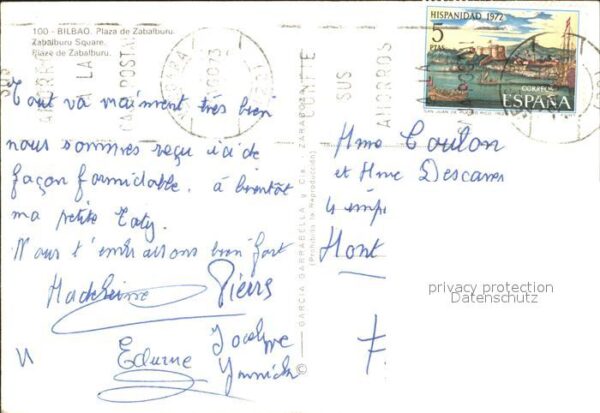 100 - BILBAO. Plaza de Zabalburu.
Zabalburu Square.
Place de Zabalburu.
Tout va vraiment très bien
nous sommes reçu ici de
façon formidable. à bientôt
ma petite Caty.
Nous t'embrassons bien fort
Madeleine Pierre
Jocelyne
Edurne Yannick
GARCIA GARRABELLA y Cía. - ZARAGOZA
(Prohibida la Reproducción)
HISPANIDAD 1972
5
PTAS
CORREOS
ESPAÑA
CORREOS
SUS
AHORROS
A LA
CAJA POSTAL
CONFIE
SUS
AHORROS
A LA
Mme Coulon
et Mme Descaves
4 imp
Mont
F
privacy protection
Datenschutz